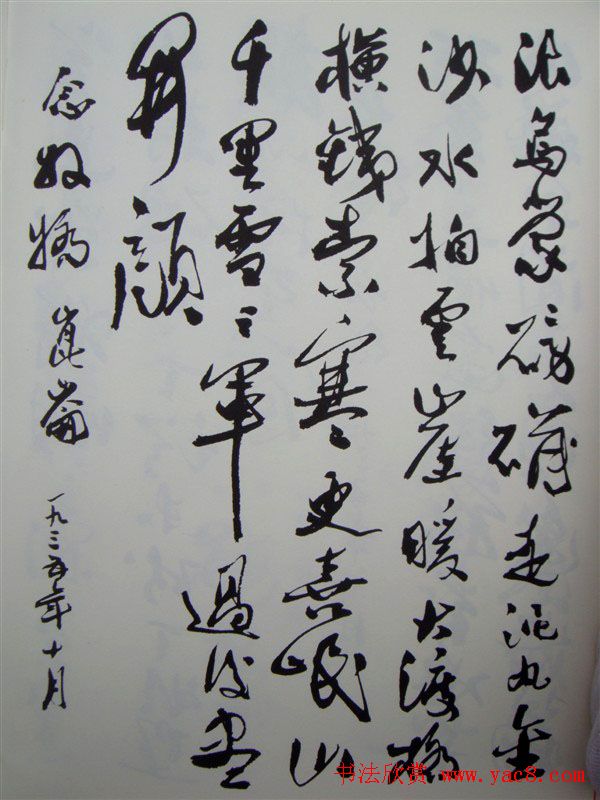 浪乌蒙磅礴走泥丸金
沙水拍云崖暖大渡桥
横铁索寒寒更喜岷山
千里雪三军过后尽
开颜
念奴娇 昆仑
一九三五年十月
书法欣赏 www.yac8.com